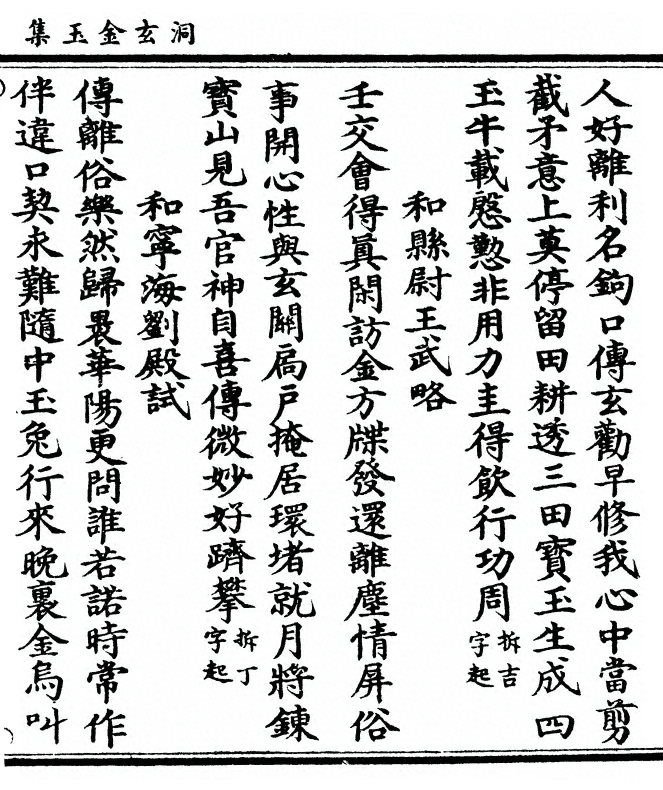 洞玄金玉集
人好離利名鉤口傳玄勸早修我心中當剪
截矛意上莫停留田耕透三田寶玉生成四
玉牛載慇懃非用力圭得飲行功周拆吉字起
和縣尉王武略
壬交會得眞閑訪金方牒發還離塵情屏俗
事開心性與玄關扃戸掩居環堵就月將鍊
寶山見吾官神自喜傳微妙好躋攀拆丁字起
和寧海劉殿試
傳離俗樂然歸畏華陽更問誰若諾時常作
伴違口契永難隨中玉兔行來晚裏金烏叫